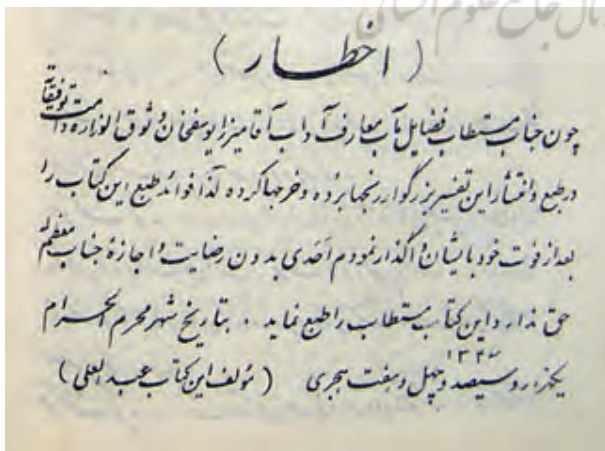 ال جامع علوم انسانی
( اخطار )
چون جناب مستطاب فضایل مآب معارف آداب آقا میرزا یوسفخان وثوق الوزاره دامت توفیقاته
در طبع و انتشار این تفسیر بزرگوار رنجها برده و خرجها کرده لذا فوائد طبع این کتاب را
بعد از فوت خود بایشان واگذار نمودم احدی بدون رضایت و اجازهٔ جناب معظم له
حق ندارد این کتاب مستطاب را طبع نماید . بتاریخ شهر محرم الحرام
۱۳۴۷
یکهزار و سیصد و چهل و هفت هجری ( مؤلف این کتاب عبدالعلی )